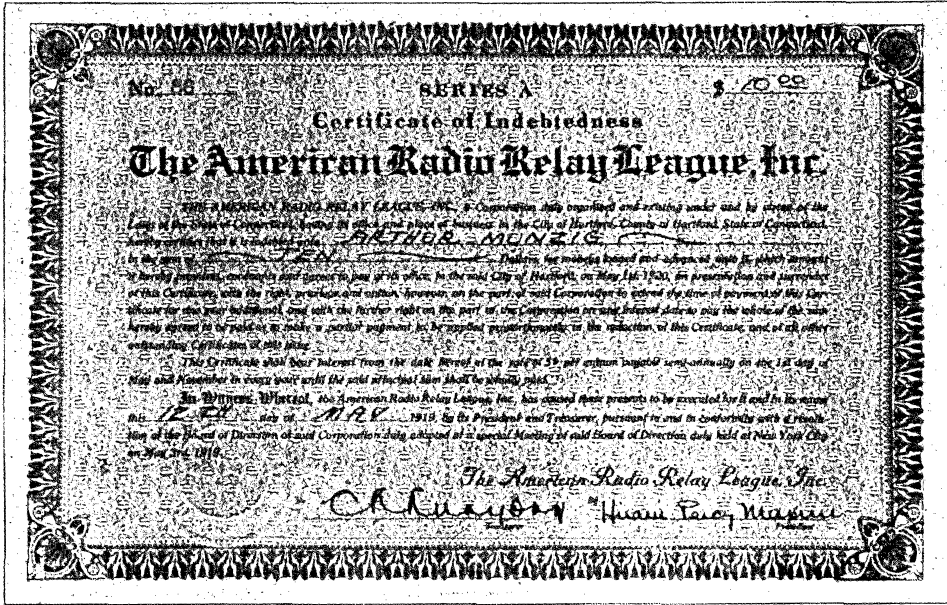 No. 56 SERIES A $ 10 00
Certificate of Indebtedness
The American Radio Relay League, Inc.
THE AMERICAN RADIO RELAY LEAGUE, INC., a Corporation duly organized and existing under and by virtue of the
Laws of the State of Connecticut, having its office and place of business in the City of Hartford, County of Hartford, State of Connecticut,
hereby certifies that it is indebted unto ARTHUR MUNZIG
in the sum of TEN Dollars, for moneys loaned and advanced unto it, which amount
it hereby promises, and agrees to pay at its office, in the said City of Hartford, on May 1st, 1920, on presentation and surrender
of this Certificate, with the right, privilege and option, however, on the part of said Corporation to extend the time of payment of this Cer-
tificate for one year additional, and with the further right on the part of the Corporation on any interest date to pay the whole of the sum
hereby agreed to be paid or to make a partial payment to be applied proportionately in the reduction of this Certificate, and of all other
outstanding Certificates of this issue.
This Certificate shall bear interest from the date hereof at the rate of 5% per annum payable semi-annually on the 1st day of
May and November in every year until the said principal sum shall be wholly paid.
In Witness Whereof, the American Radio Relay League, Inc., has caused these presents to be executed for it and in its name
this 12th day of MAY 1919, by its President and Treasurer, pursuant to and in conformity with a resolu-
tion of the Board of Directors of said Corporation duly adopted at a special Meeting of said Board of Directors duly held at New York City
on May 3rd, 1919.
The American Radio Relay League, Inc.
Hiram Percy Maxim
Treasurer President